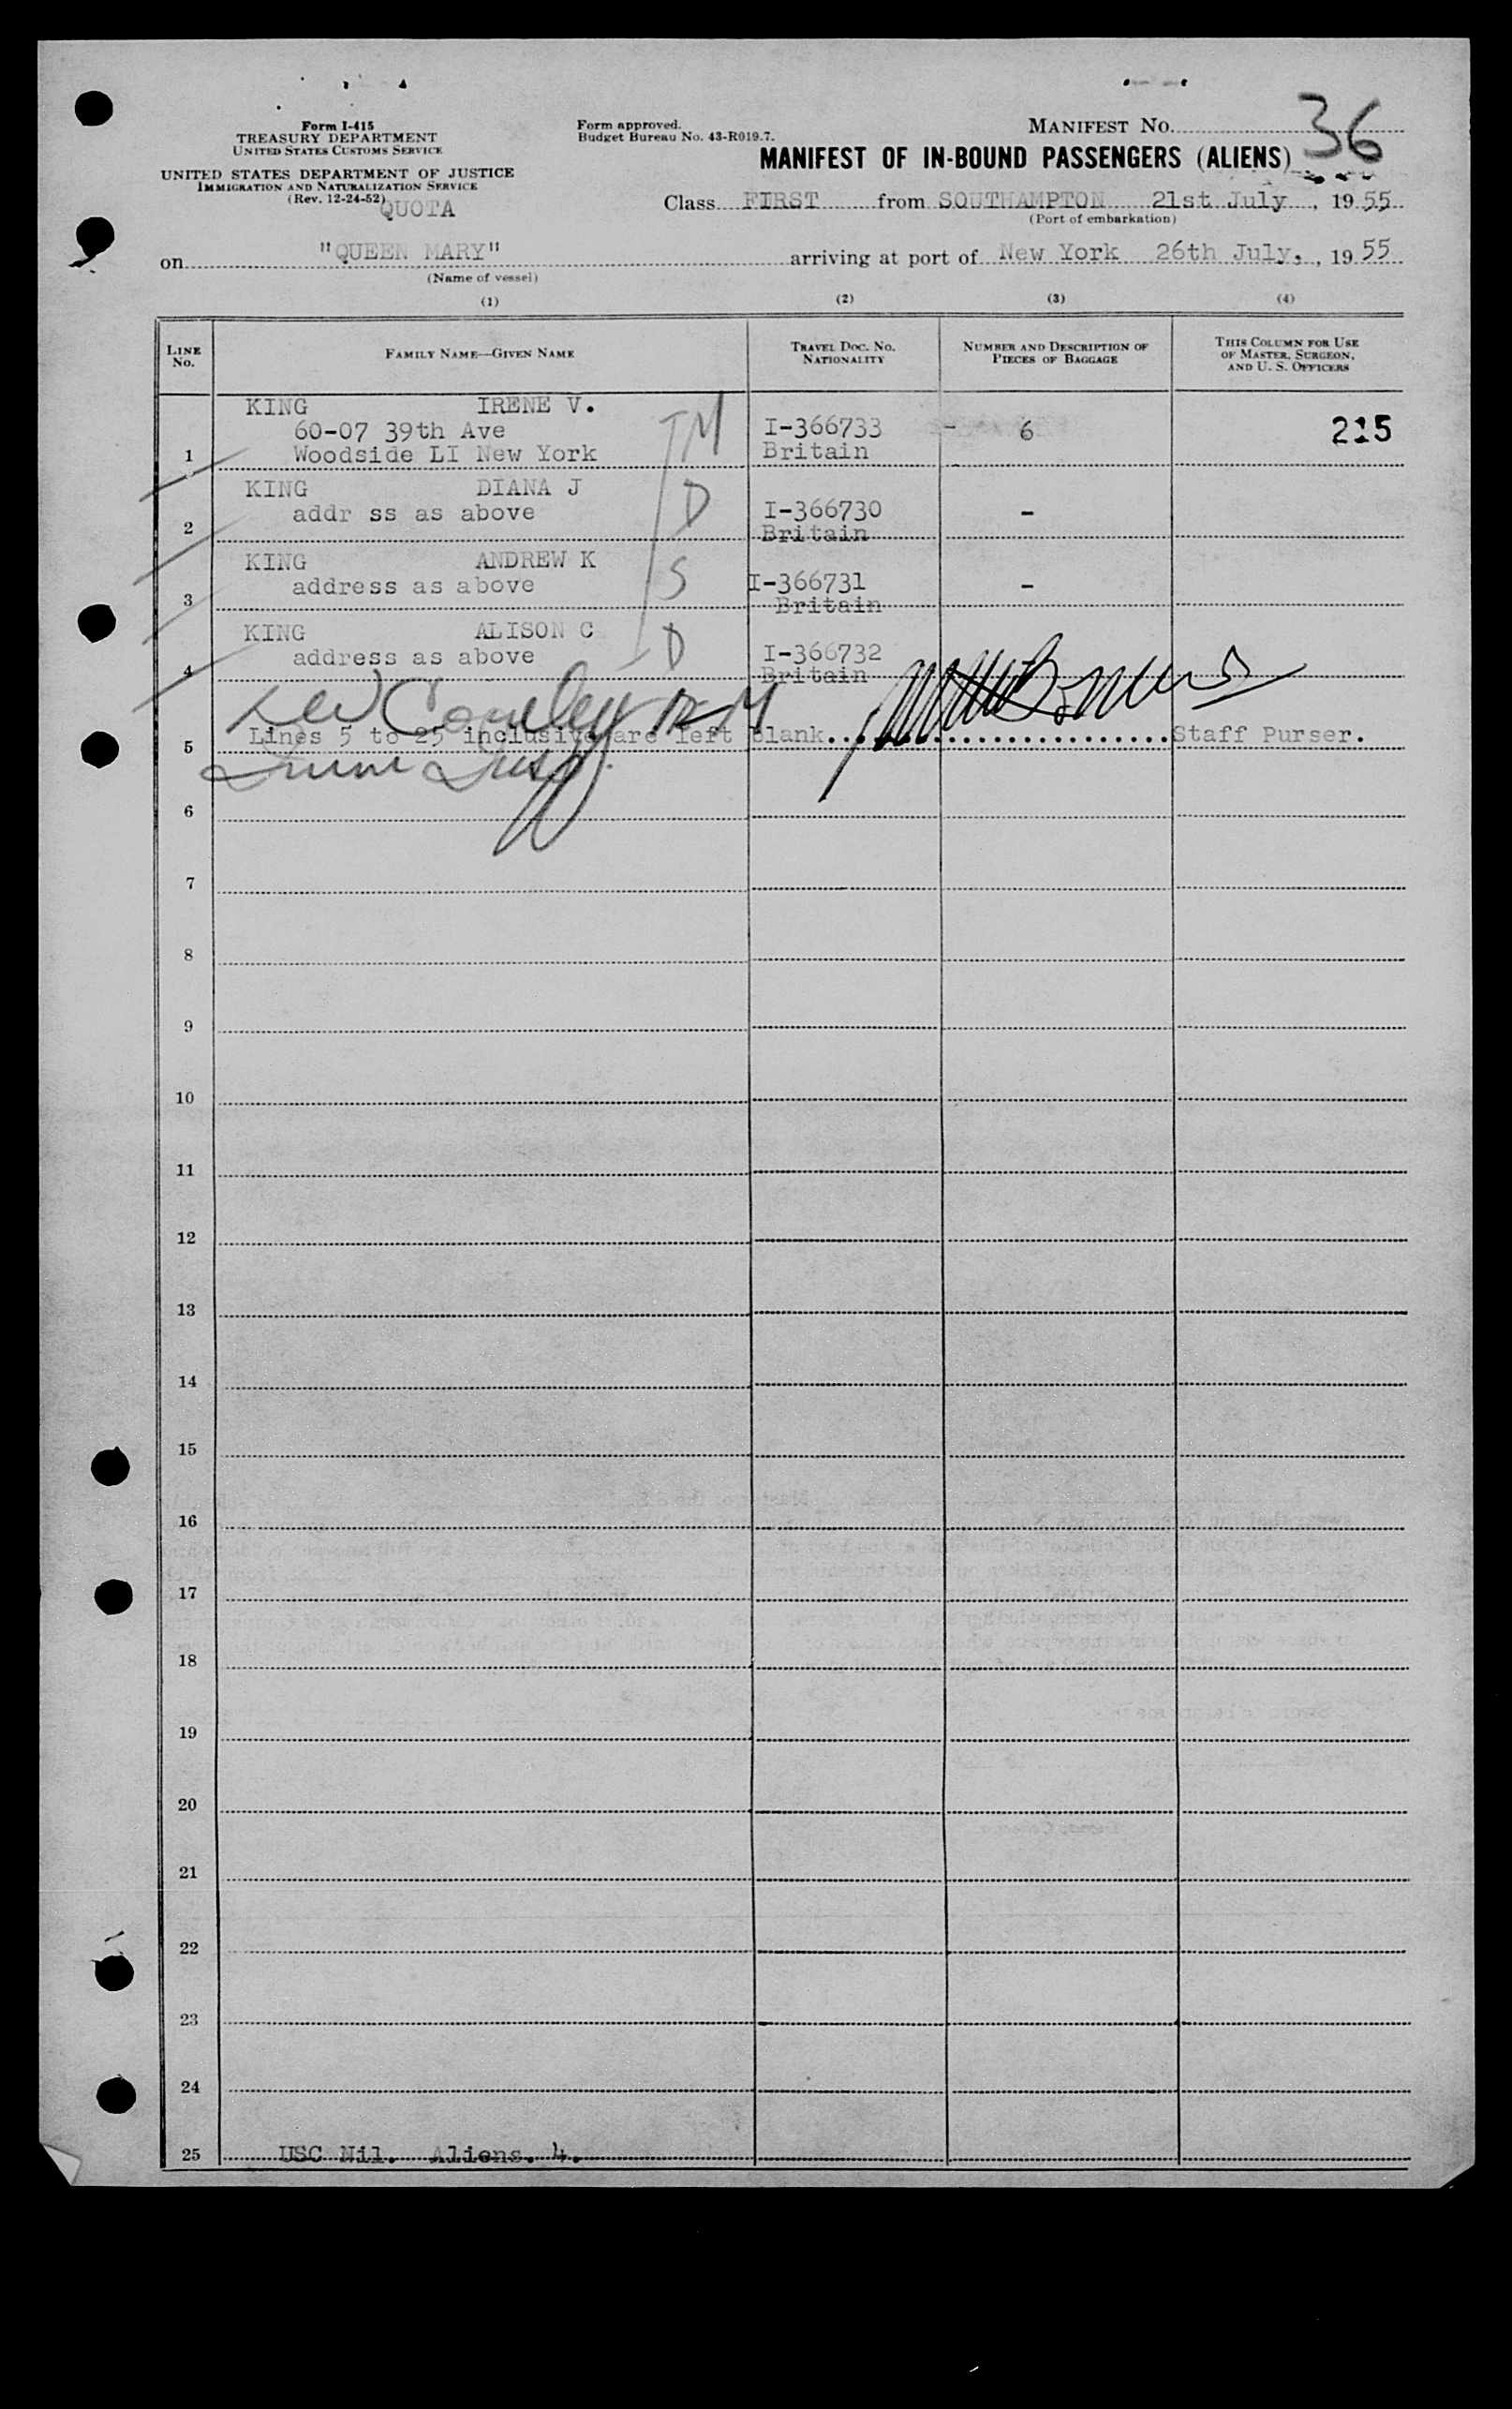 Form I-415
TREASURY DEPARTMENT
UNITED STATES CUSTOMS SERVICE
UNITED STATES DEPARTMENT OF JUSTICE
IMMIGRATION AND NATURALIZATION SERVICE
(Rev. 12-24-52)
QUOTA
Form approved.
Budget Bureau No. 43-R019.7.
MANIFEST NO. 36
MANIFEST OF IN-BOUND PASSENGERS (ALIENS)
Class FIRST from SOUTHAMPTON 21st July, 1955
(Port of embarkation)
on "QUEEN MARY" arriving at port of New York 26th July, 1955
(Name of vessel)
(1) (2) (3) (4)
LINE NO. FAMILY NAME—GIVEN NAME TRAVEL DOC. NO. NATIONALITY NUMBER AND DESCRIPTION OF PIECES OF BAGGAGE THIS COLUMN FOR USE OF MASTER, SURGEON, AND U. S. OFFICERS
KING IRENE V. M
60-07 39th Ave I-366733 - 6 215
1 Woodside LI New York Britain
KING DIANA J D
addr ss as above I-366730 -
2 Britain
KING ANDREW K S
address as above I-366731 -
3 Britain
KING ALISON C D
address as above I-366732
4 Britain
5 Lines 5 to 25 inclusive are left blank. Staff Purser.
6
7
8
9
10
11
12
13
14
15
16
17
18
19
20
21
22
23
24
25 USC Nil. Aliens. 4.